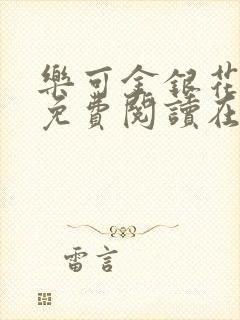 樂可金銀花
免費閱讀在
雷言